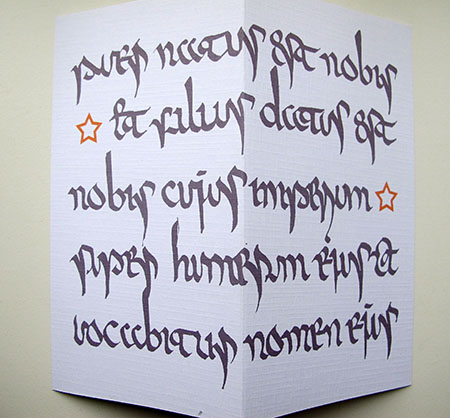 puer natus est nobis
et filius datus est
nobis cujus imperium
super humerum ejus et
vocabitur nomen ejus